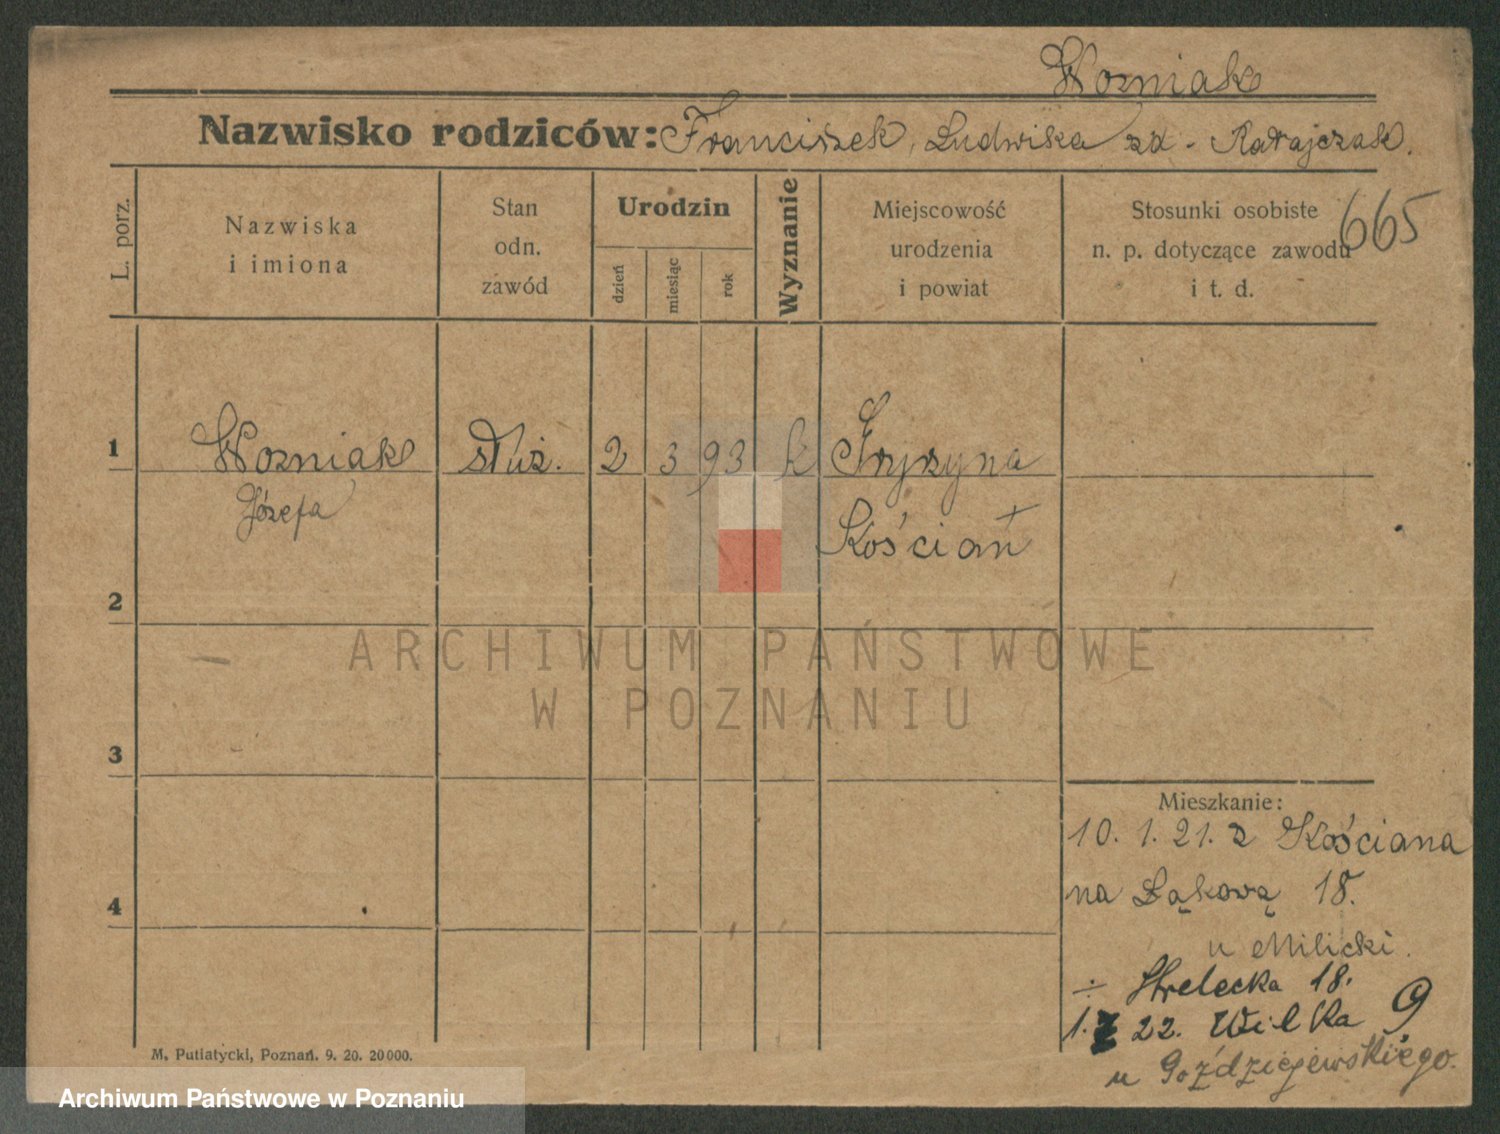 Wozniak
Nazwisko rodziców: Franciszek, Ludwika zd - Ratajczak.
665
L. porz.
Nazwiska
i imiona
Stan
odn.
zawód
Urodzin
dzień
miesiąc
rok
Wyznanie
Miejscowość
urodzenia
i powiat
Stosunki osobiste
n. p. dotyczące zawodu
i t. d.
1
Wozniak
Józefa
służ.
2
3
93
k
Kościan
2
3
4
Mieszkanie:
10. 1. 21. z Kościana
na Łąkową 18.
u Milicki.
÷ Strelecka 18.
1. 22. Wilka 9
u Goździejewskiego.
M. Putiatycki, Poznań. 9. 20. 20000.
ARCHIWUM PAŃSTWOWE
W POZNANIU
Archiwum Państwowe w Poznaniu